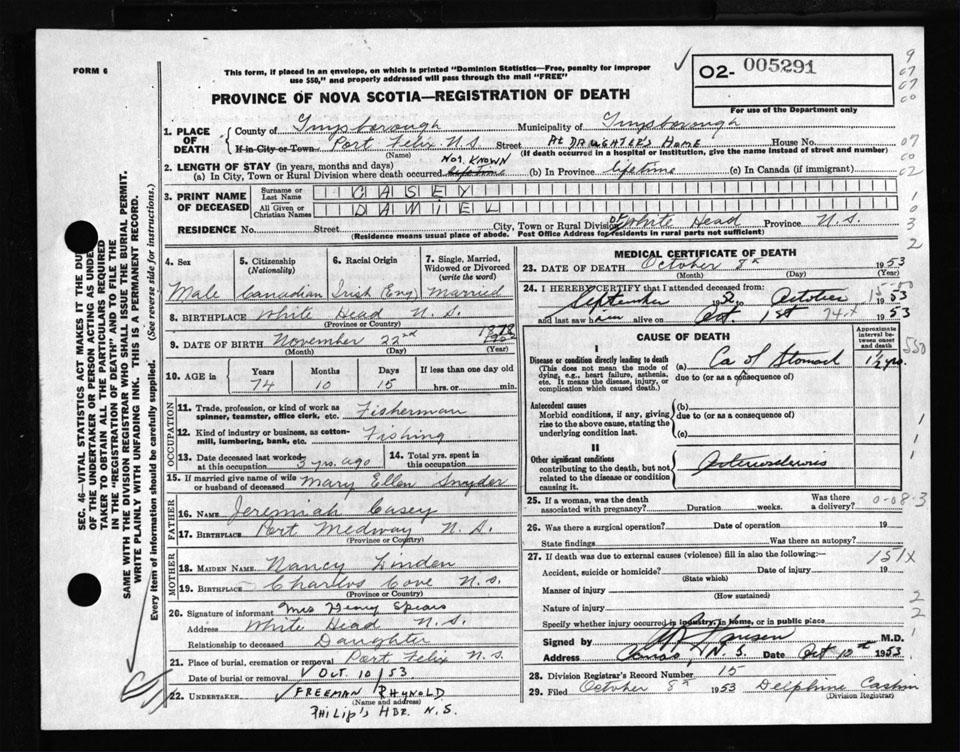 FORM 6
This form, if placed in an envelope, on which is printed "Dominion Statistics—Free, penalty for improper
use $50," and properly addressed will pass through the mail "FREE"
PROVINCE OF NOVA SCOTIA—REGISTRATION OF DEATH
02- 005291
For use of the Department only
1. PLACE OF DEATH
County of Guysborough Municipality of Guysborough
If in City or Town Port Felix N.S. Street At Daughters Home House No.
(Name) (If death occurred in a hospital or institution, give the name instead of street and number)
2. LENGTH OF STAY (in years, months and days) Not Known
(a) In City, Town or Rural Division where death occurred Lifetime (b) In Province lifetime (c) In Canada (if immigrant)
3. PRINT NAME OF DECEASED
Surname or Last Name CASEY
All Given or Christian Names DANIEL
RESIDENCE No. Street City, Town or Rural Division of White Head Province N.S.
(Residence means usual place of abode. Post Office Address for residents in rural parts not sufficient)
4. Sex Male
5. Citizenship (Nationality) Canadian
6. Racial Origin Irish (Eng)
7. Single, Married, Widowed or Divorced (write the word) Married
8. BIRTHPLACE White Head N.S.
(Province or Country)
9. DATE OF BIRTH November 22nd 1878
(Month) (Day) (Year)
10. AGE in Years Months Days If less than one day old
74 10 15 hrs. or min.
OCCUPATION
11. Trade, profession, or kind of work as spinner, teamster, office clerk, etc. Fisherman
12. Kind of industry or business, as cotton-mill, lumbering, bank, etc. Fishing
13. Date deceased last worked at this occupation 3 yrs. ago
14. Total yrs. spent in this occupation
15. If married give name of wife or husband of deceased Mary Ellen Snyder
FATHER
16. NAME Jeremiah Casey
17. BIRTHPLACE Port Medway N.S.
(Province or Country)
MOTHER
18. MAIDEN NAME Nancy Linden
19. BIRTHPLACE Charlos Cove N.S.
(Province or Country)
20. Signature of informant Mrs Henry Spears
Address White Head N.S.
Relationship to deceased Daughter
21. Place of burial, cremation or removal Port Felix N.S.
Date of burial or removal Oct. 10/53
22. UNDERTAKER FREEMAN RHYNOLD
(Name and address)
PHILIP'S HBR. N.S.
MEDICAL CERTIFICATE OF DEATH
23. DATE OF DEATH October 8th 1953
(Month) (Day) (Year)
24. I HEREBY CERTIFY that I attended deceased from:
September 1952 to October 1953
and last saw him alive on Oct. 1st 1953
CAUSE OF DEATH
Approximate interval between onset and death
I
Disease or condition directly leading to death
(This does not mean the mode of dying, e.g., heart failure, asthenia, etc. It means the disease, injury, or complication which caused death.)
(a) Ca of Stomach 1 1/2 yrs.
due to (or as a consequence of)
Antecedent causes
Morbid conditions, if any, giving rise to the above cause, stating the underlying condition last.
(b)
due to (or as a consequence of)
(c)
II
Other significant conditions
contributing to the death, but not related to the disease or condition causing it.
Arteriosclerosis
25. If a woman, was the death associated with pregnancy? Duration weeks. Was there a delivery?
26. Was there a surgical operation? Date of operation 19
State findings Was there an autopsy?
27. If death was due to external causes (violence) fill in also the following:—
Accident, suicide or homicide? Date of injury 19
(State which)
Manner of injury
(How sustained)
Nature of injury
Specify whether injury occurred in industry, in home, or in public place
Signed by M.D.
Address Canso, N.S. Date Oct 12th 1953
28. Division Registrar's Record Number 15
29. Filed October 8th 1953 Delphine
(Division Registrar)
151X
SEC. 46—VITAL STATISTICS ACT MAKES IT THE DUTY
OF THE UNDERTAKER OR PERSON ACTING AS UNDER-
TAKER TO OBTAIN ALL THE PARTICULARS REQUIRED
IN THE "REGISTRATION OF DEATH" AND TO FILE THE
SAME WITH THE DIVISION REGISTRAR WHO SHALL ISSUE THE BURIAL PERMIT.
WRITE PLAINLY WITH UNFADING INK. THIS IS A PERMANENT RECORD.
Every item of information should be carefully supplied. (See reverse side for instructions.)